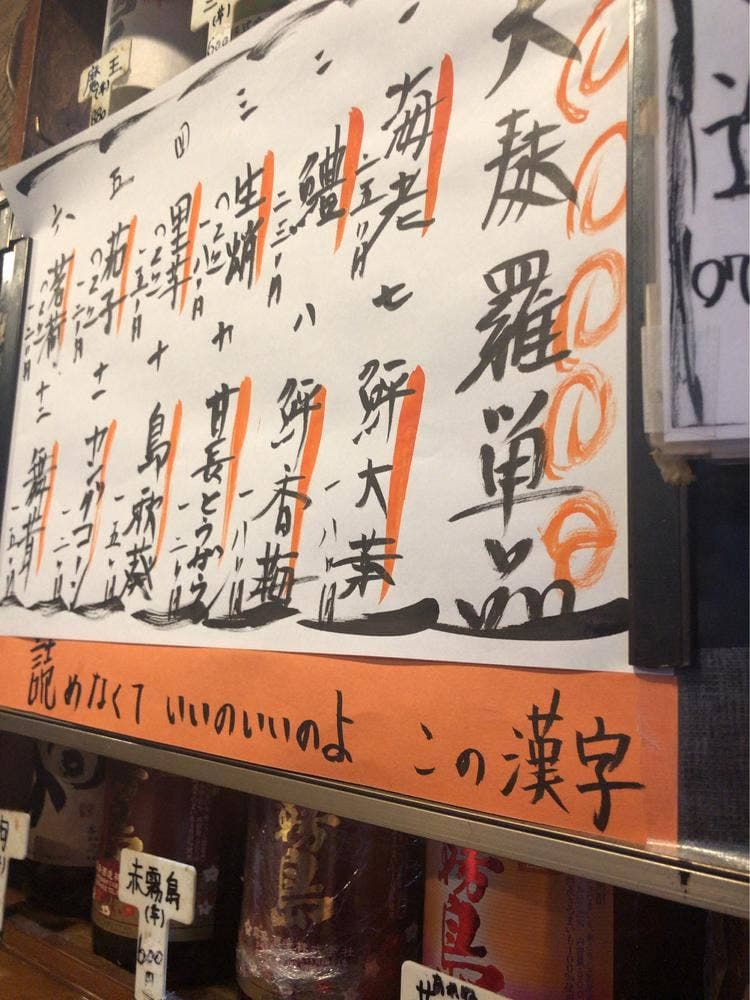 天麩羅単品
一
海老
二五〇円
二
鱧
二三〇円
三
生蛸
一八〇円
四
里芋
一五〇円
五
茄子
一二〇円
六
茗荷
一二〇円
七
鮃大葉
一八〇円
八
鮃香梅
一八〇円
九
甘長とうがらし
一二〇円
十
島
一五〇円
十一
ヤングコーン
一二〇円
十二
舞茸
一五〇円
読めなくて いいのいいのよ この漢字
魔王
(芋)
600
赤霧島
(芋)
600円
霧島
霧島